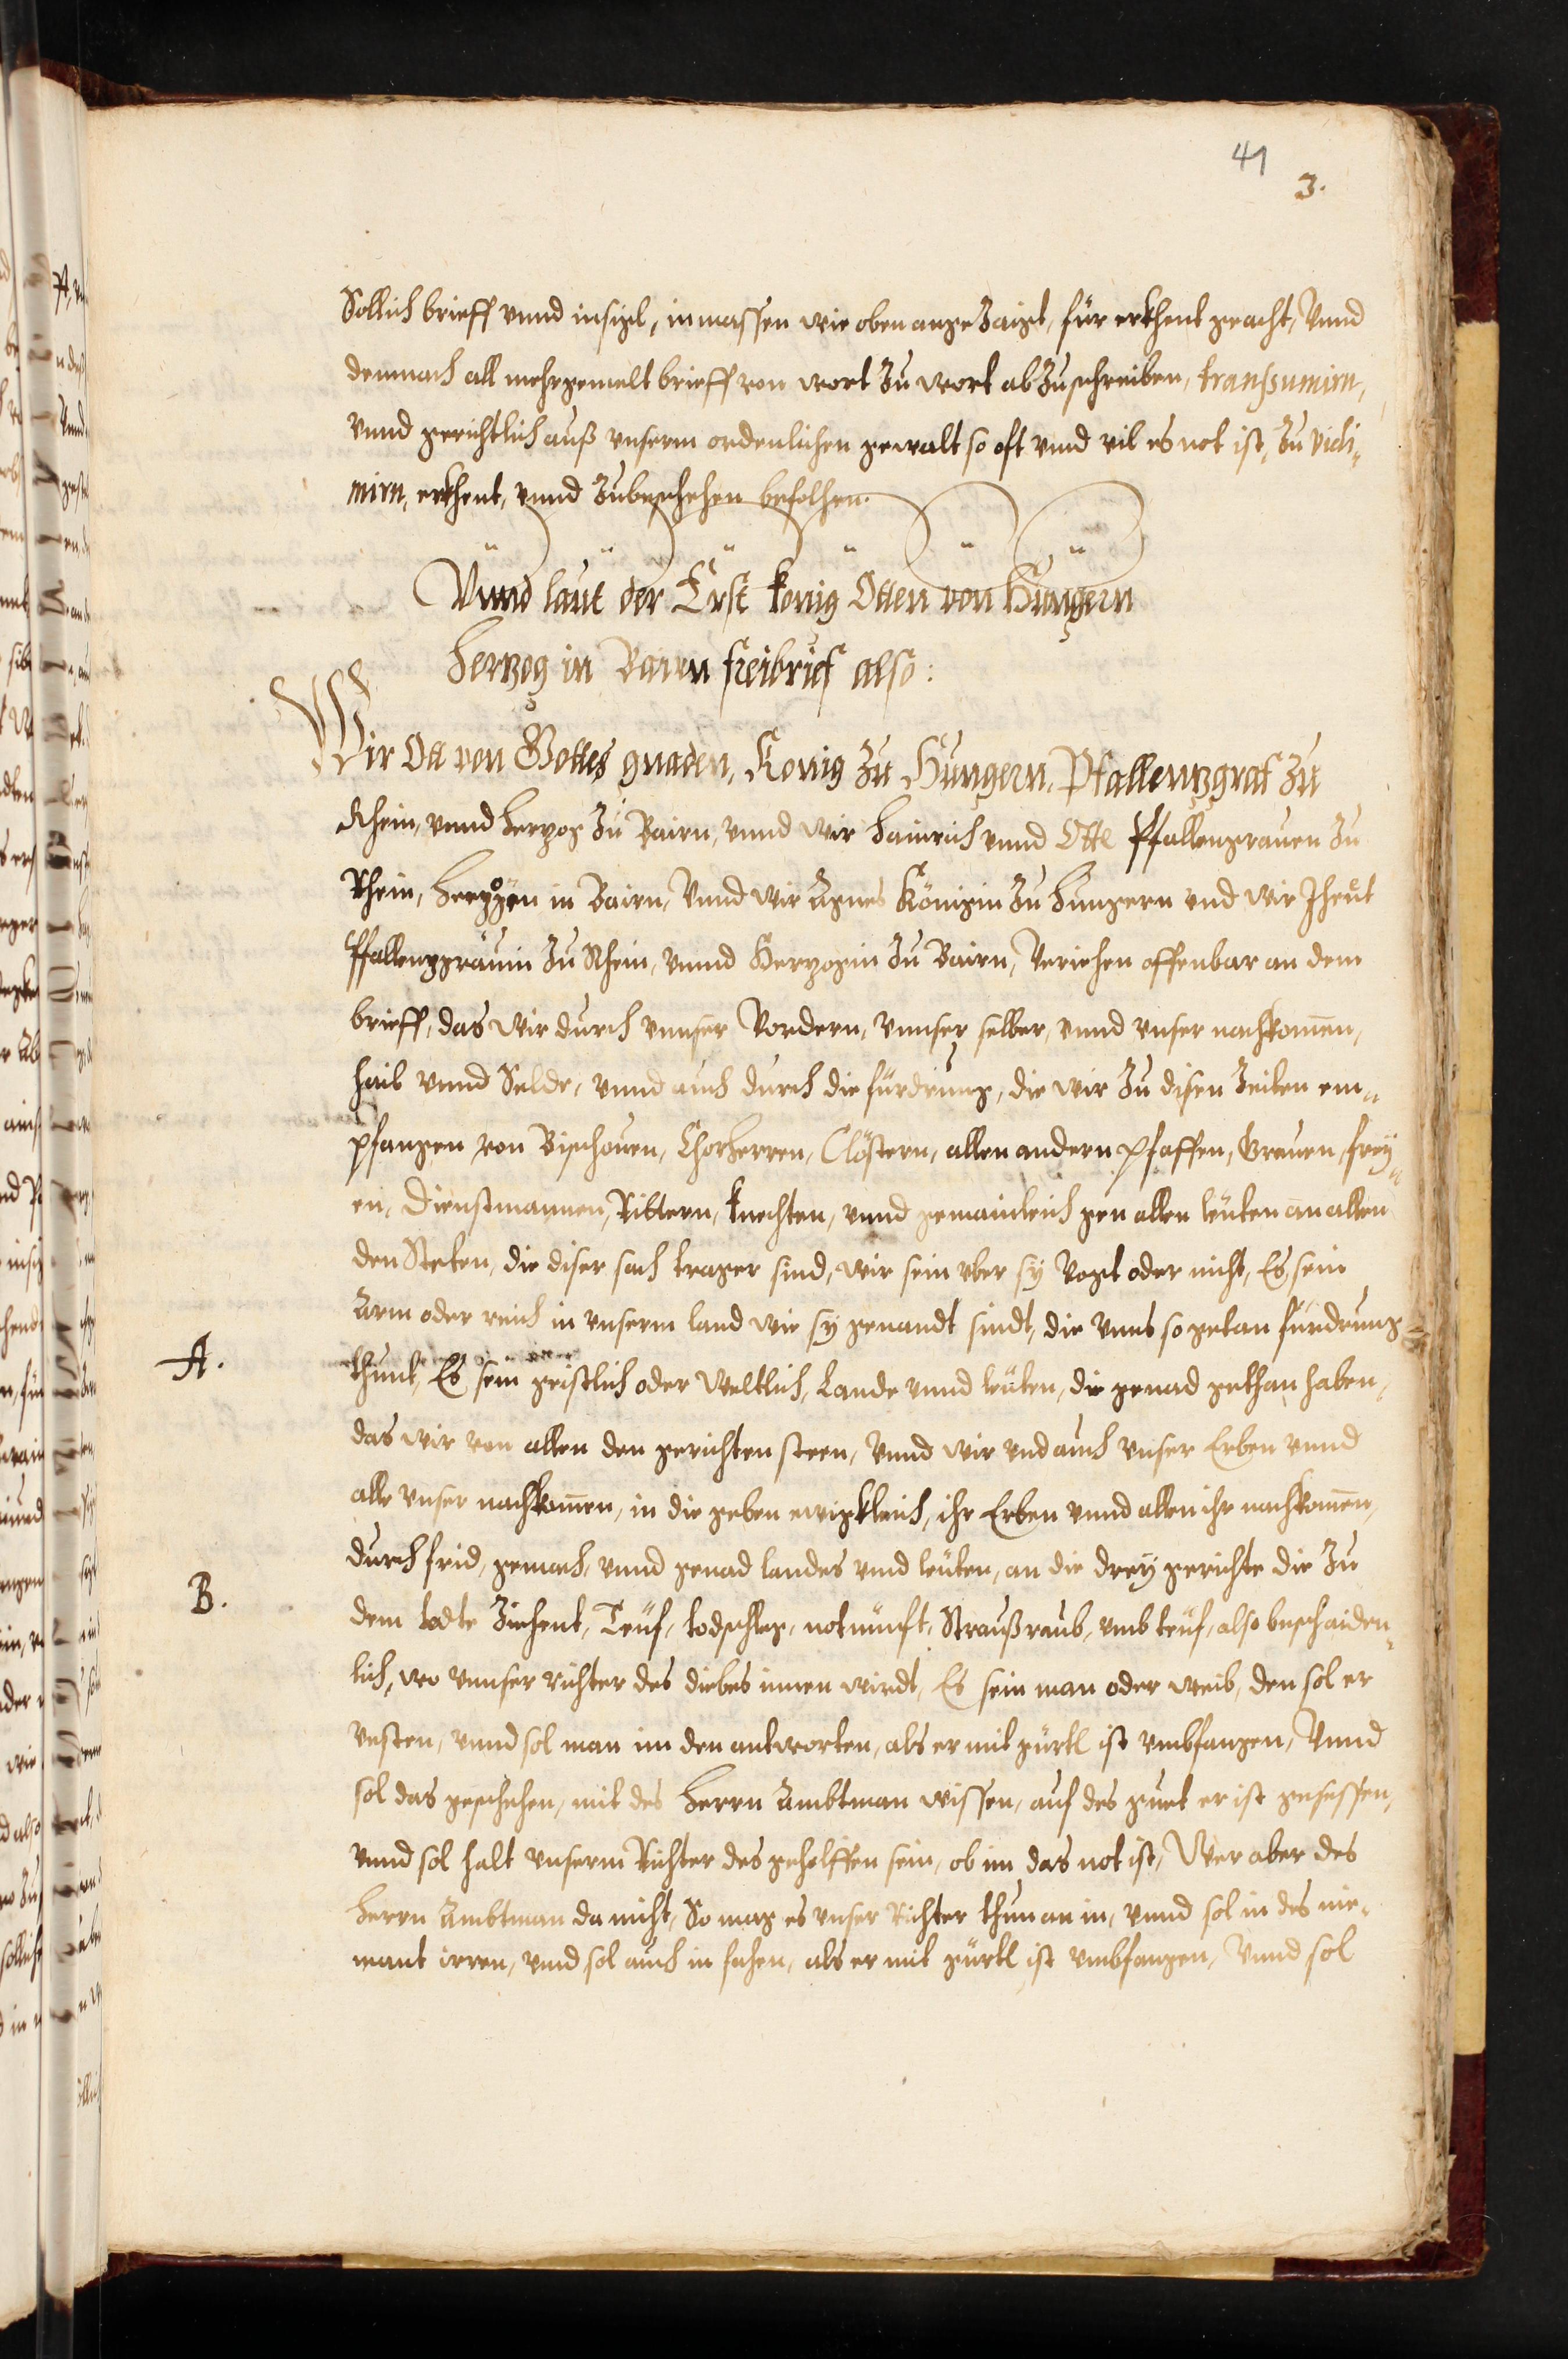 41
3.
Sollich brieff vnnd insigl, inmassen wie oben angezaigt, für erkhent geacht, Vnnd
demnach all mehrgemelt brieff von wort zu wort abzuschreiben, transsumirn,
vnnd gerichtlich auß vnserm ordenlichen gewalt so oft vnnd vil es not ist, zu vidi„
mirn, erkhent, vnnd zubeschehen befolhen.
Vnnd laut der Erst konig Otten von Hungern
Hertzog in Bairn freibrief also:
Wir Ott von Gottes gnaden, Konig zu Hungern, Pfallentzgraf zu
Rhein, vnnd Hertzog zu Bairn, vnnd wir Hainrich vnnd Otte Pfallenzgrauen zu
Rhein, Hertzögen in Bairn, Vnnd wir Agnes Königin zu Hungern vnd wir Jheut
Pfallenzgräuin zu Rhein, vnnd Hertzogin zu Bairn, Veriehen offenbar an dem
brieff, das wir durch vnnser Vordern, vnnser selber, vnnd vnser nachkomen,
hail vnnd Selde, vnnd auch durch die fürdrung, die wir zu disen zeiten em„
pfangen von Bischouen, Chorherren, Clöstern, allen andern Pfaffen, Grauen, frey„
en, Dienstmannen, Rittern, knechten, vnnd gemainleich gen allen leuten an allen
den Steten, die diser sach trager sind, wir sein vber sy Vogt oder nicht, Es sein
Arm oder reich in vnserm land wie sy genandt sindt, die vnns so getan fürdrung
A.
thunt, Es sein geistlich oder Weltlich, Lande vnnd leuten, die genad gethan haben,
das wir von allen den gerichten steen, Vnnd wir vnd auch vnser Erben vnnd
alle vnser nachkomen, in die geben ewigkleich, ihr Erben vnnd allen ihr nachkomen,
durch frid, gemach, vnnd genad landes vnnd leuten, an die drey gerichte die zu
B.
dem todte ziehent, Teuf, todschleg, notnunft, Straußraub, vmb teuf, also beschaiden„
lich, wo vnnser richter des diebes innen wirdt, Es sein man oder weib, den sol er
vesten, vnnd sol man im den antworten, als er mit gürtl ist vmbfangen, Vnnd
sol das geschehen, mit des Herrn Ambtman wissen, auf des guet er ist gesessen,
vnnd sol halt vnserm Richter des geholffen sein, ob im das not ist, Wer aber des
Herrn Ambtman da nicht, So mag es vnser Richter thun an in, vnnd sol in des nie„
mant irren, vnnd sol auch in fahen, als er mit gürtl ist vmbfangen, Vnnd sol